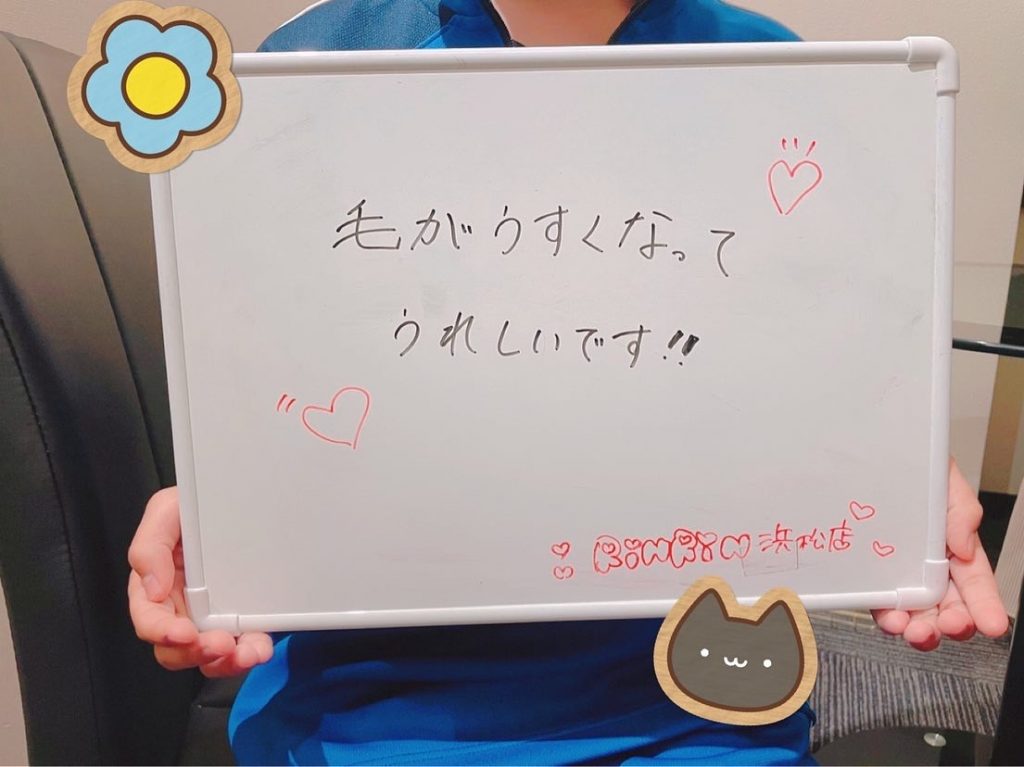 毛がうすくなって
うれしいです!!
浜松店